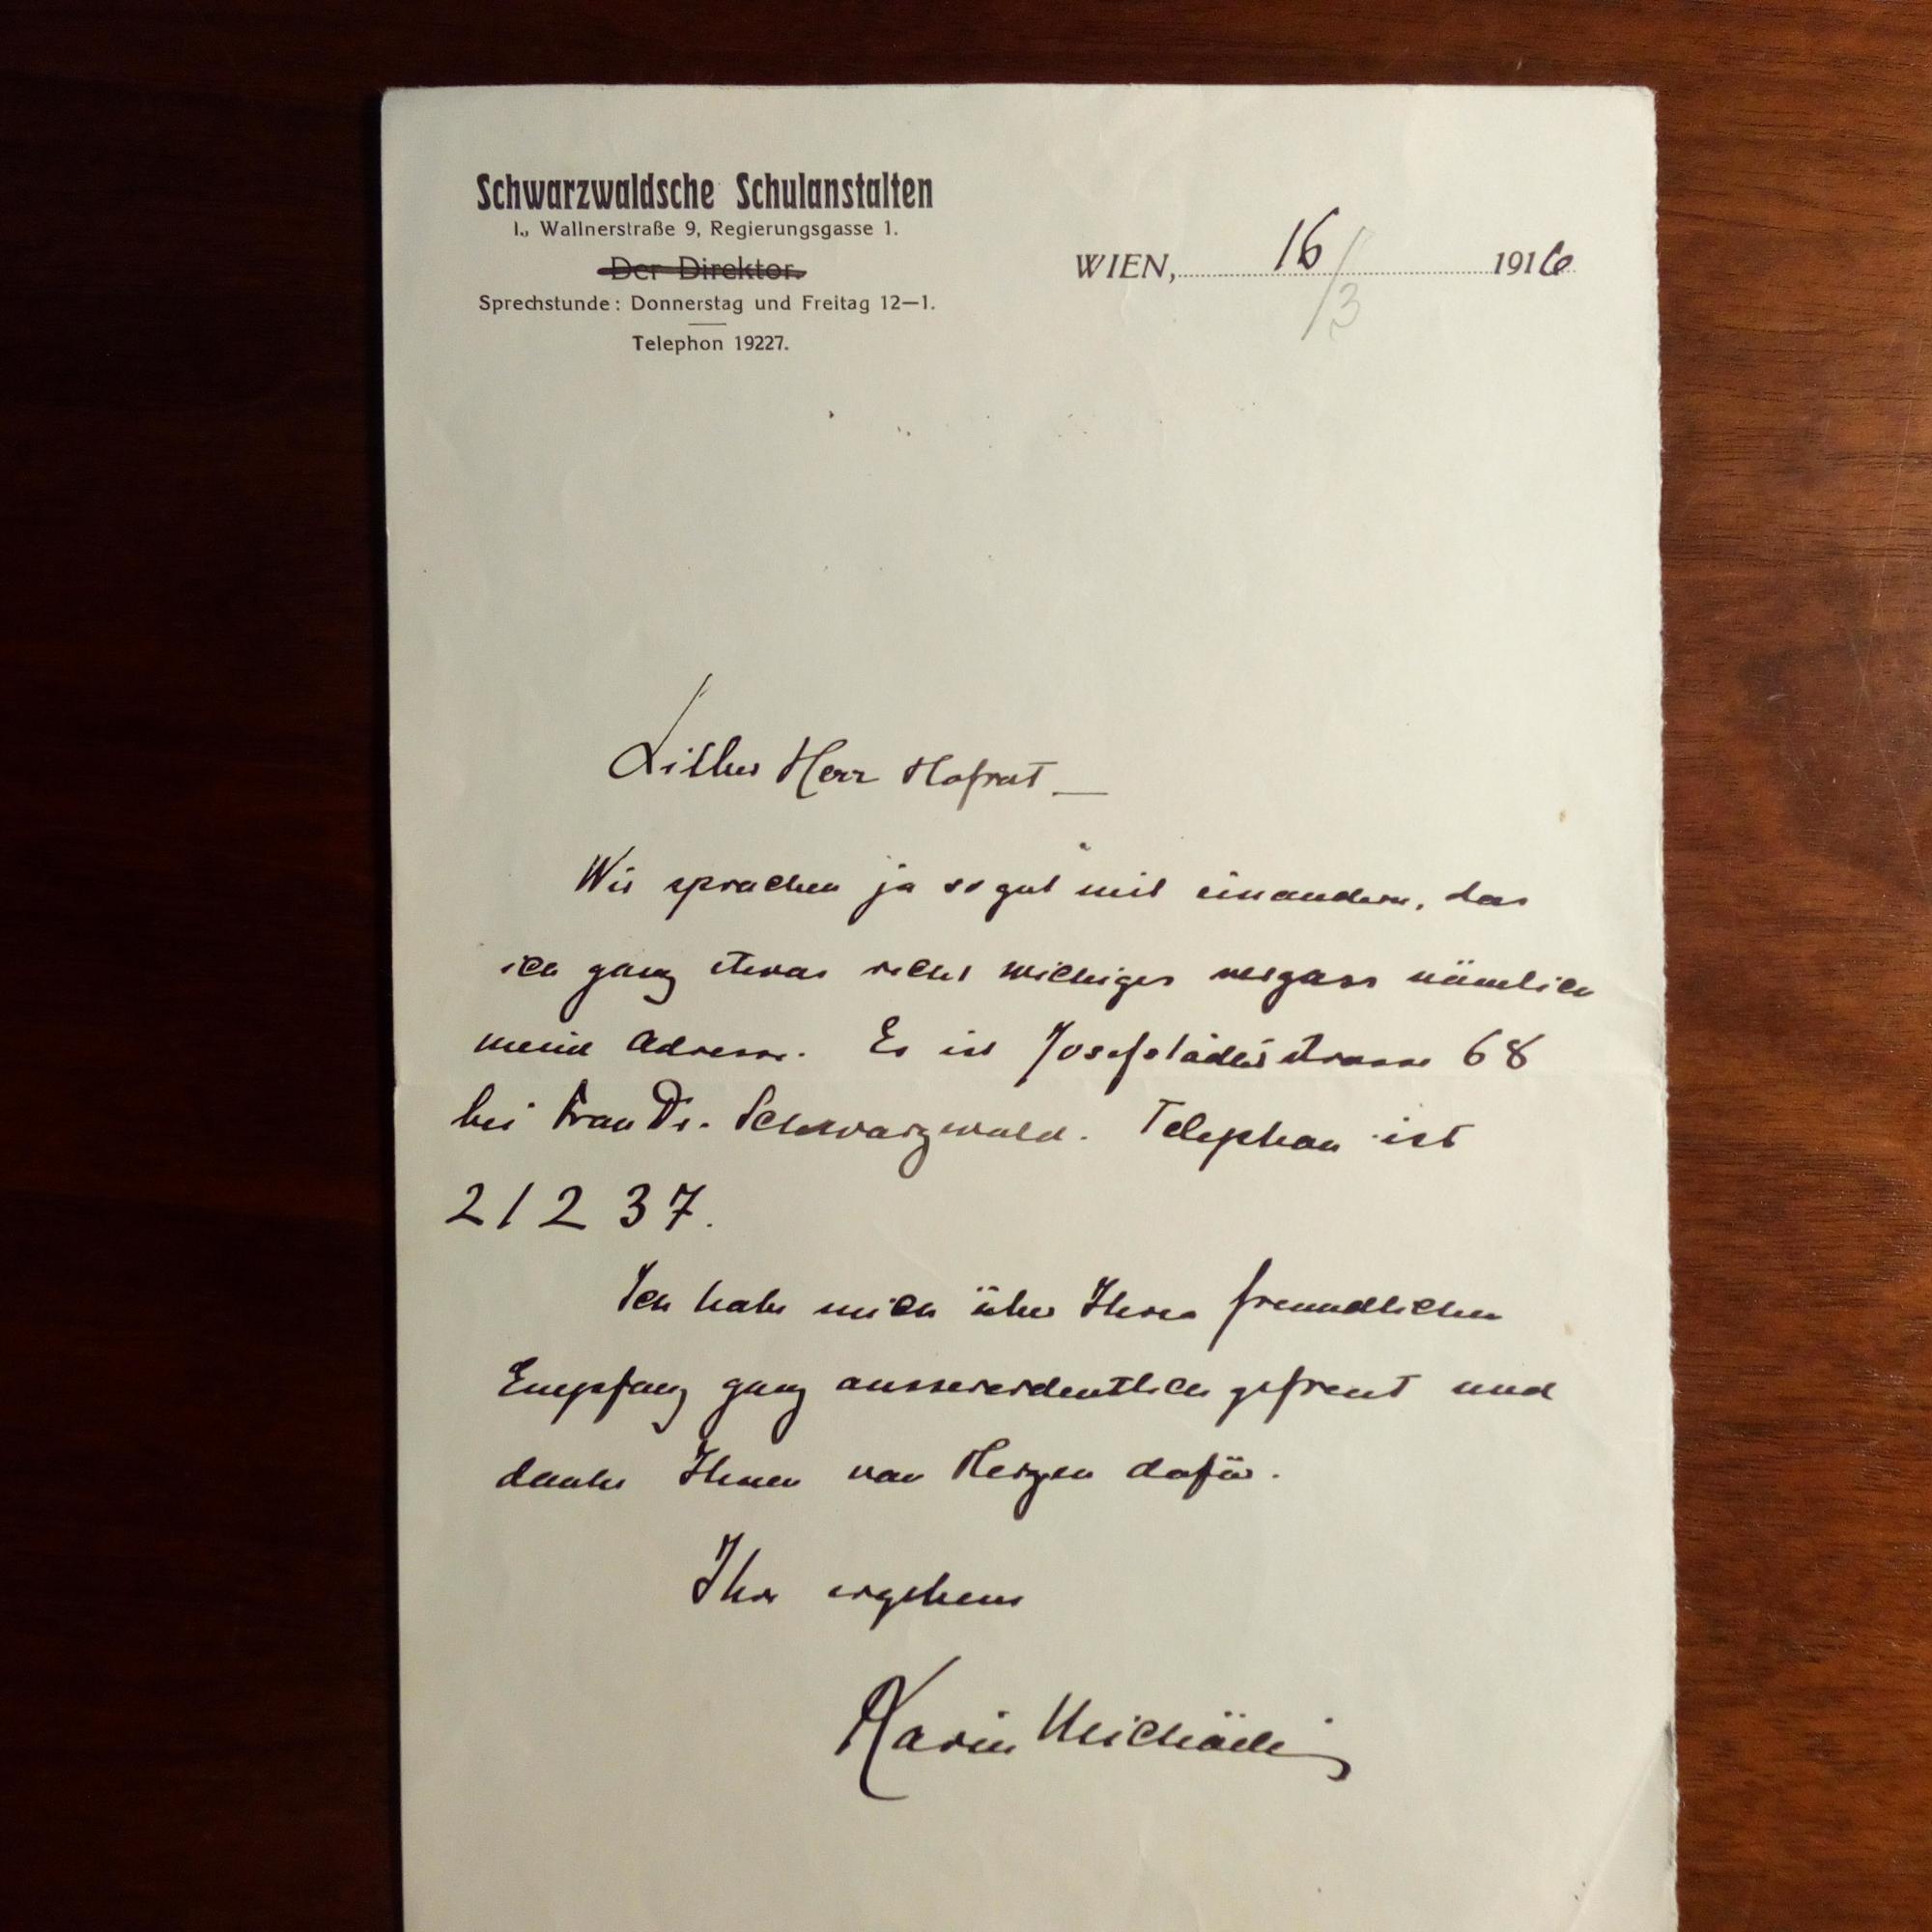 Schwarzwaldsche Schulanstalten
I., Wallnerstraße 9, Regierungsgasse 1.
Der Direktor.
Sprechstunde: Donnerstag und Freitag 12—1.
Telephon 19227.
WIEN, 16/3 1916
Lieber Herr Hofrat _
Wir sprachen ja so gut mit einandern, das
ich ganz etwas recht wichtiges vergass nämlich
meine Adresse. Es ist Josefstäderstrasse 68
bei Frau Dr. Schwarzwald. Telephon ist
21237.
Ich habe mich über Ihren freundlichen
Empfang ganz ausserordentlich gefreut und
danke Ihnen von Herzen dafür.
Ihre ergebene
Karin Michäelis